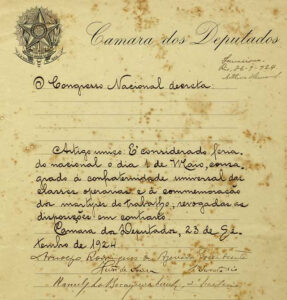 Camara dos Deputados
Rio, 26-9-924
O Congresso Nacional decreta:
Artigo unico. É considerado feria
do nacional o dia 1 de Maio, consa
grado à confraternidade universal das
classes operarias e á commemoração
dos martyres do trabalho; revogadas as
disposições em contrario.
Camara dos Deputados, 23 de Se
tembro de 1924